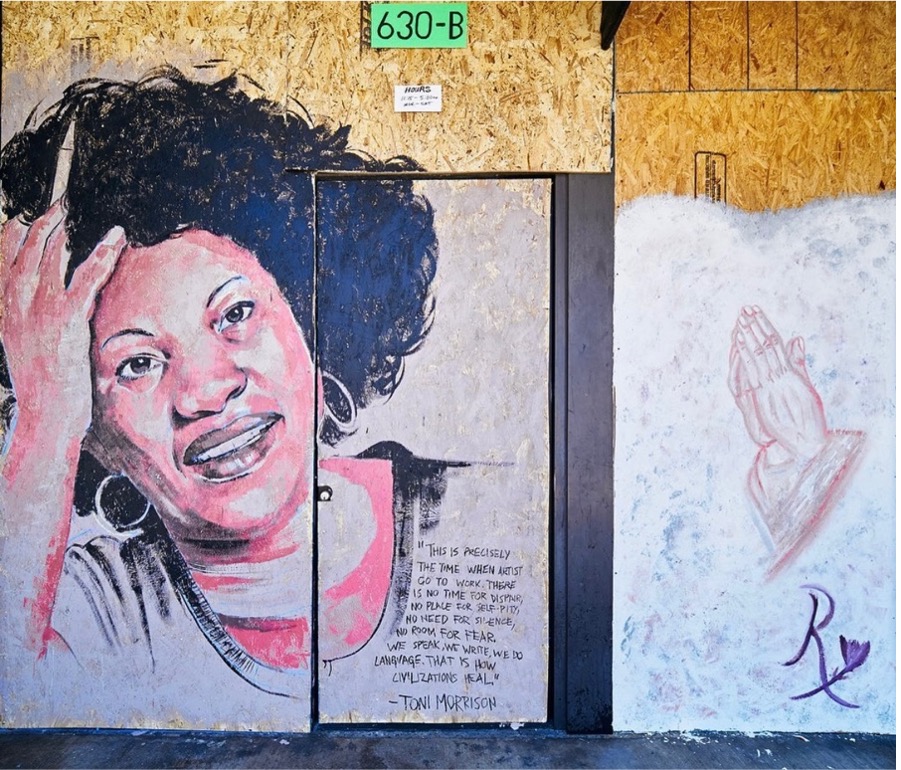 630-B
HOURS
"THIS IS PRECISELY
THE TIME WHEN ARTIST
GO TO WORK. THERE
IS NO TIME FOR DISPAIR,
NO PLACE FOR SELF-PITY,
NO NEED FOR SILENCE,
NO ROOM FOR FEAR.
WE SPEAK, WE WRITE, WE DO
LANGUAGE. THAT IS HOW
CIVILIZATIONS HEAL."
-TONI MORRISON
R